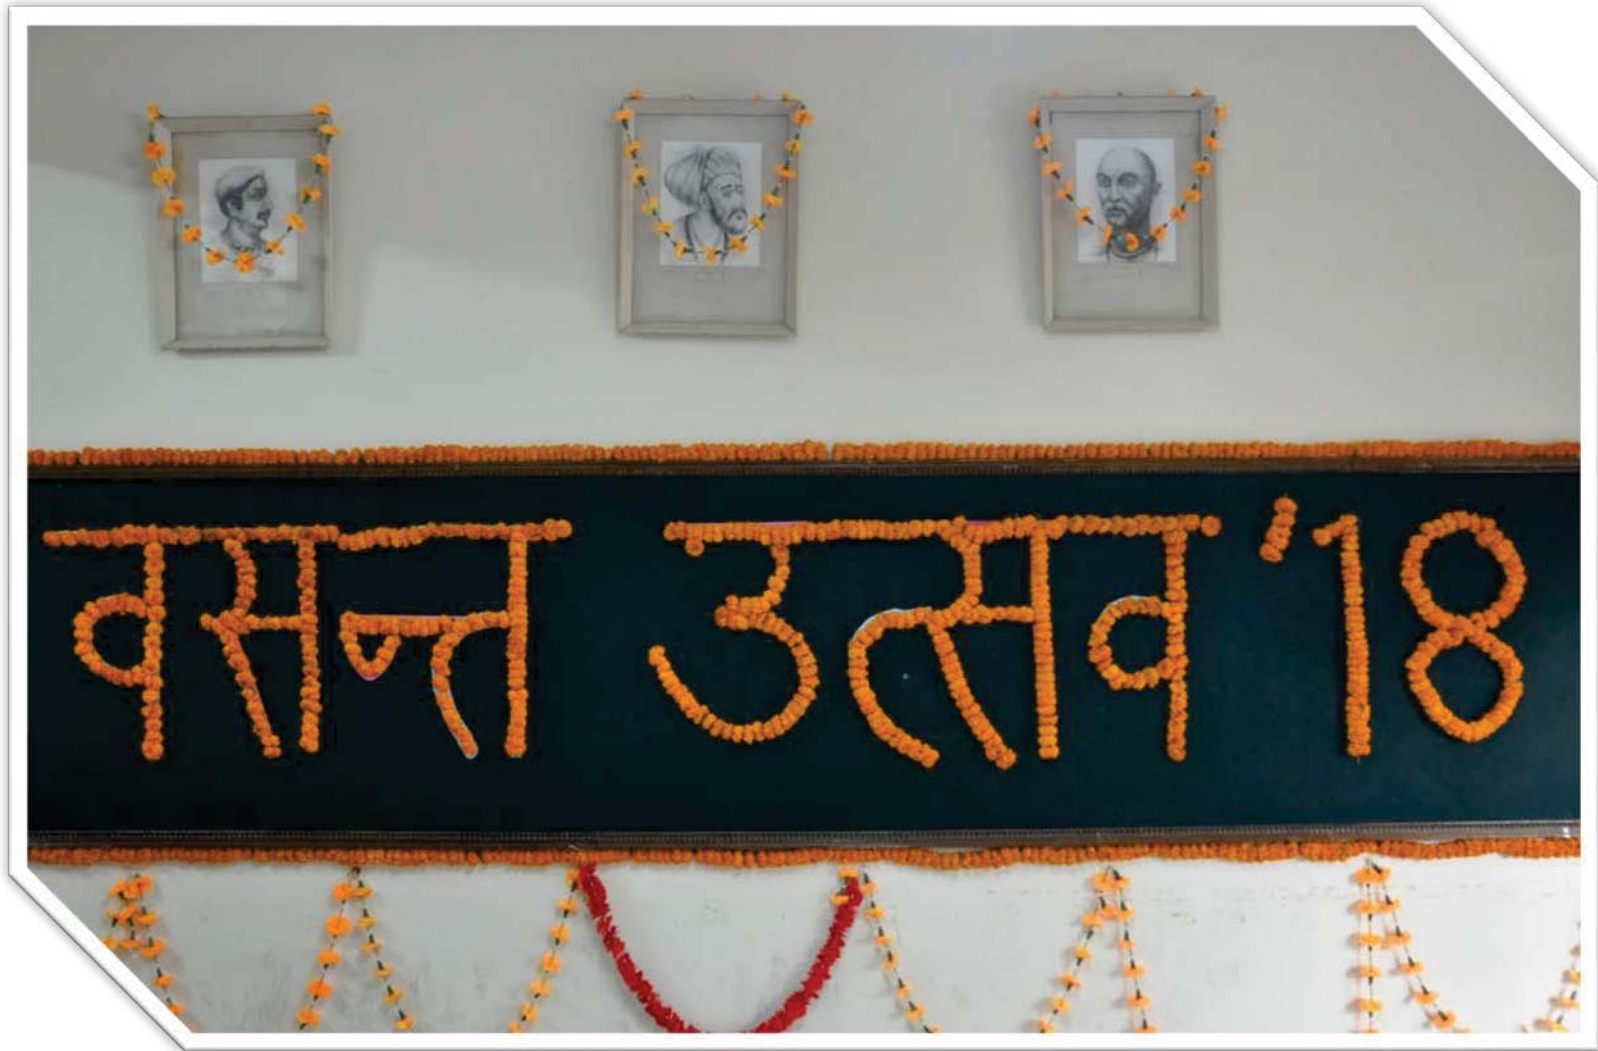 वसन्त उत्सव '18